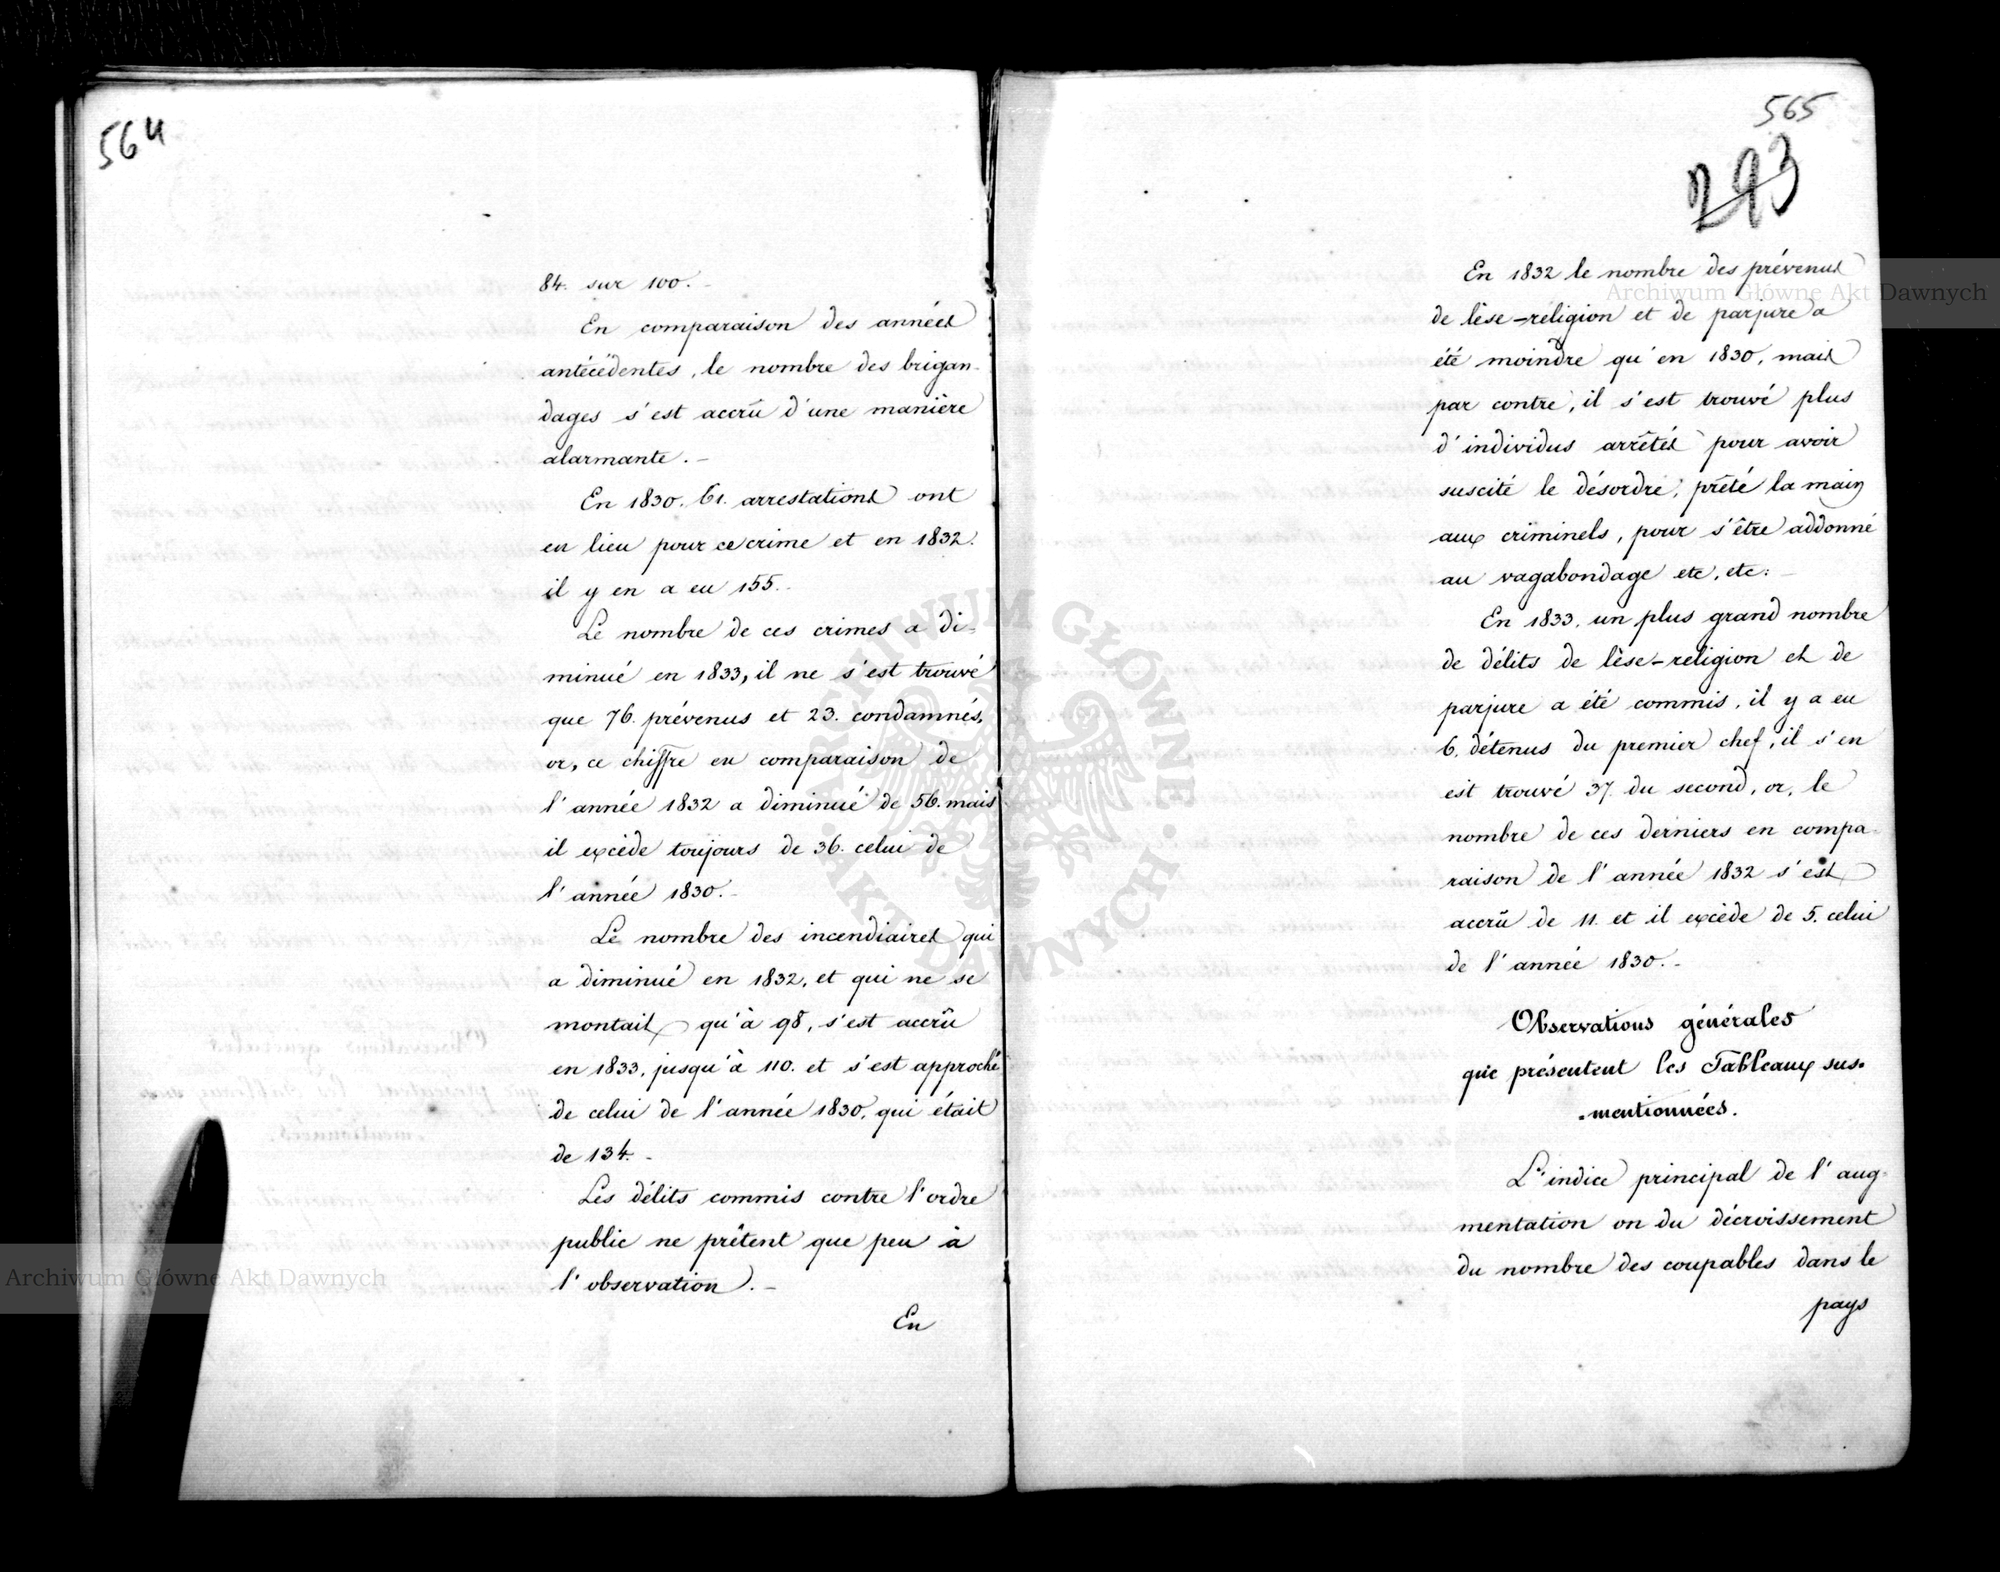 564
84. sur 100.-
En comparaison des années
antécédentes, le nombre des brigan-
dages s'est accrû d'une manière
alarmante.-
En 1830. 61. arrestations ont
eu lieu pour ce crime et en 1832.
il y en a eu 155.-
Le nombre de ces crimes a di-
minué en 1833, il ne s'est trouvé
que 76. prévenus et 23. condamnés,
or, ce chiffre en comparaison de
l'année 1832 a diminué de 56. mais
il excède toujours de 36. celui de
l'année 1830.-
Le nombre des incendiaires qui
a diminué en 1832, et qui ne se
montait qu'à 98, s'est accrû
en 1833, jusqu'à 110. et s'est approché
de celui de l'année 1830, qui était
de 134.-
Les délits commis contre l'ordre
public ne prêtent que peu à
l'observation.-
En
565
293
En 1832 le nombre des prévenus
de lèse-réligion et de parjure a
été moindre qu'en 1830, mais
par contre, il s'est trouvé plus
d'individus arrêtés pour avoir
suscité le désordre, prêté la main
aux criminels, pour s'être addonné
au vagabondage etc, etc:-
En 1833. un plus grand nombre
de délits de lèse-religion et de
parjure a été commis, il y a eu
6. détenus du premier chef, il s'en
est trouvé 37. du second, or, le
nombre de ces derniers en compa-
raison de l'année 1832 s'est
accrû de 11. et il excède de 5. celui
de l'année 1830.-
Observations générales
que présentent les Tableaux sus-
-mentionnées.
L'indice principal de l'aug-
mentation ou du décroissement
du nombre des coupables dans le
pays
Archiwum Główne Akt Dawnych
Archiwum Główne Akt Dawnych
ARCHIWUM GŁÓWNE AKT DAWNYCH